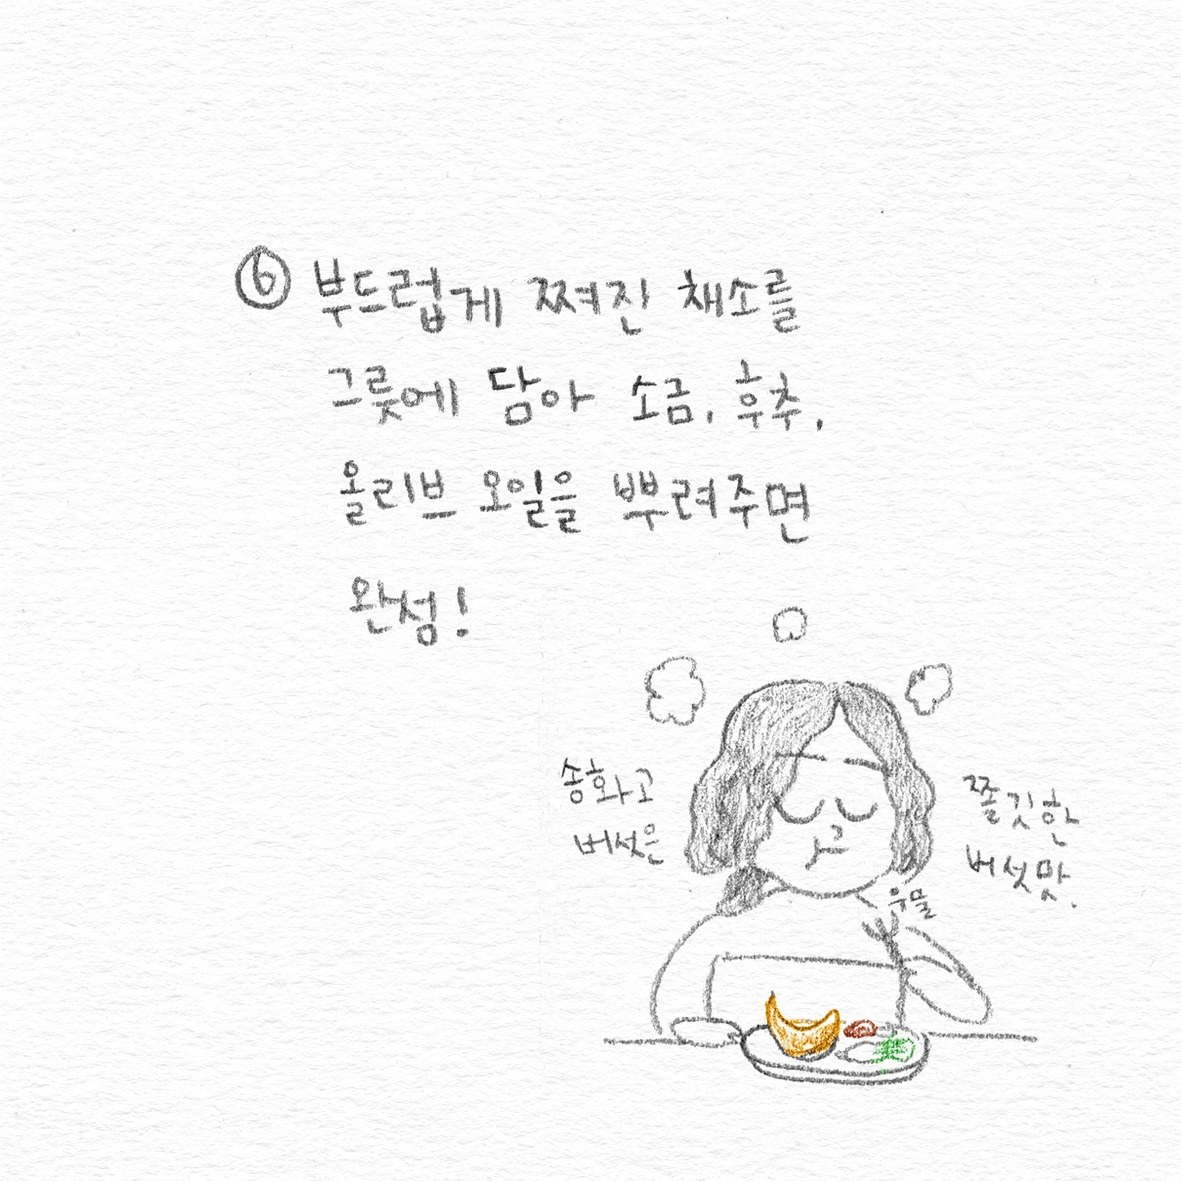 ⑥ 부드럽게 쪄진 채소를
그릇에 담아 소금, 후추,
올리브 오일을 뿌려주면
완성!
송화고
버섯은
쫄깃한
버섯맛.
우물